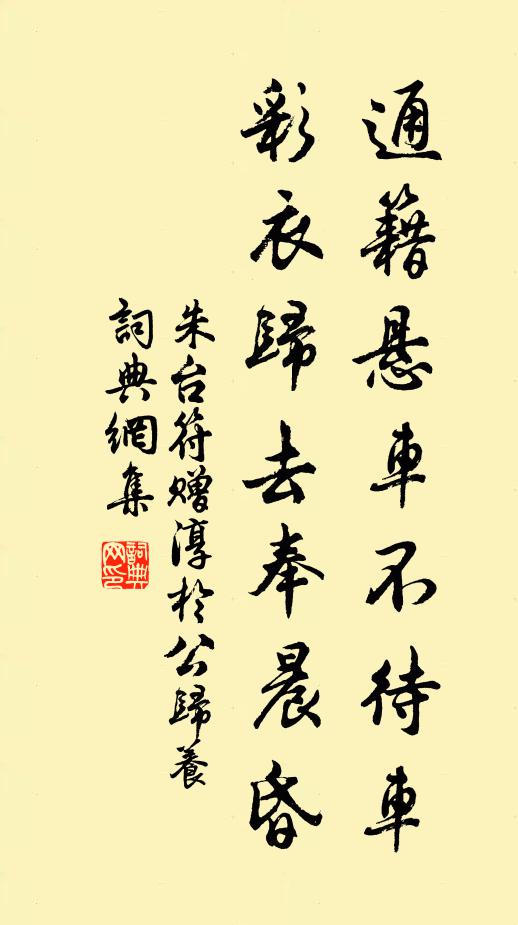 通籍悬車不待車
彩衣歸去奉晨昏
朱台符赠淳於公歸養
詞典網集
詞典網印